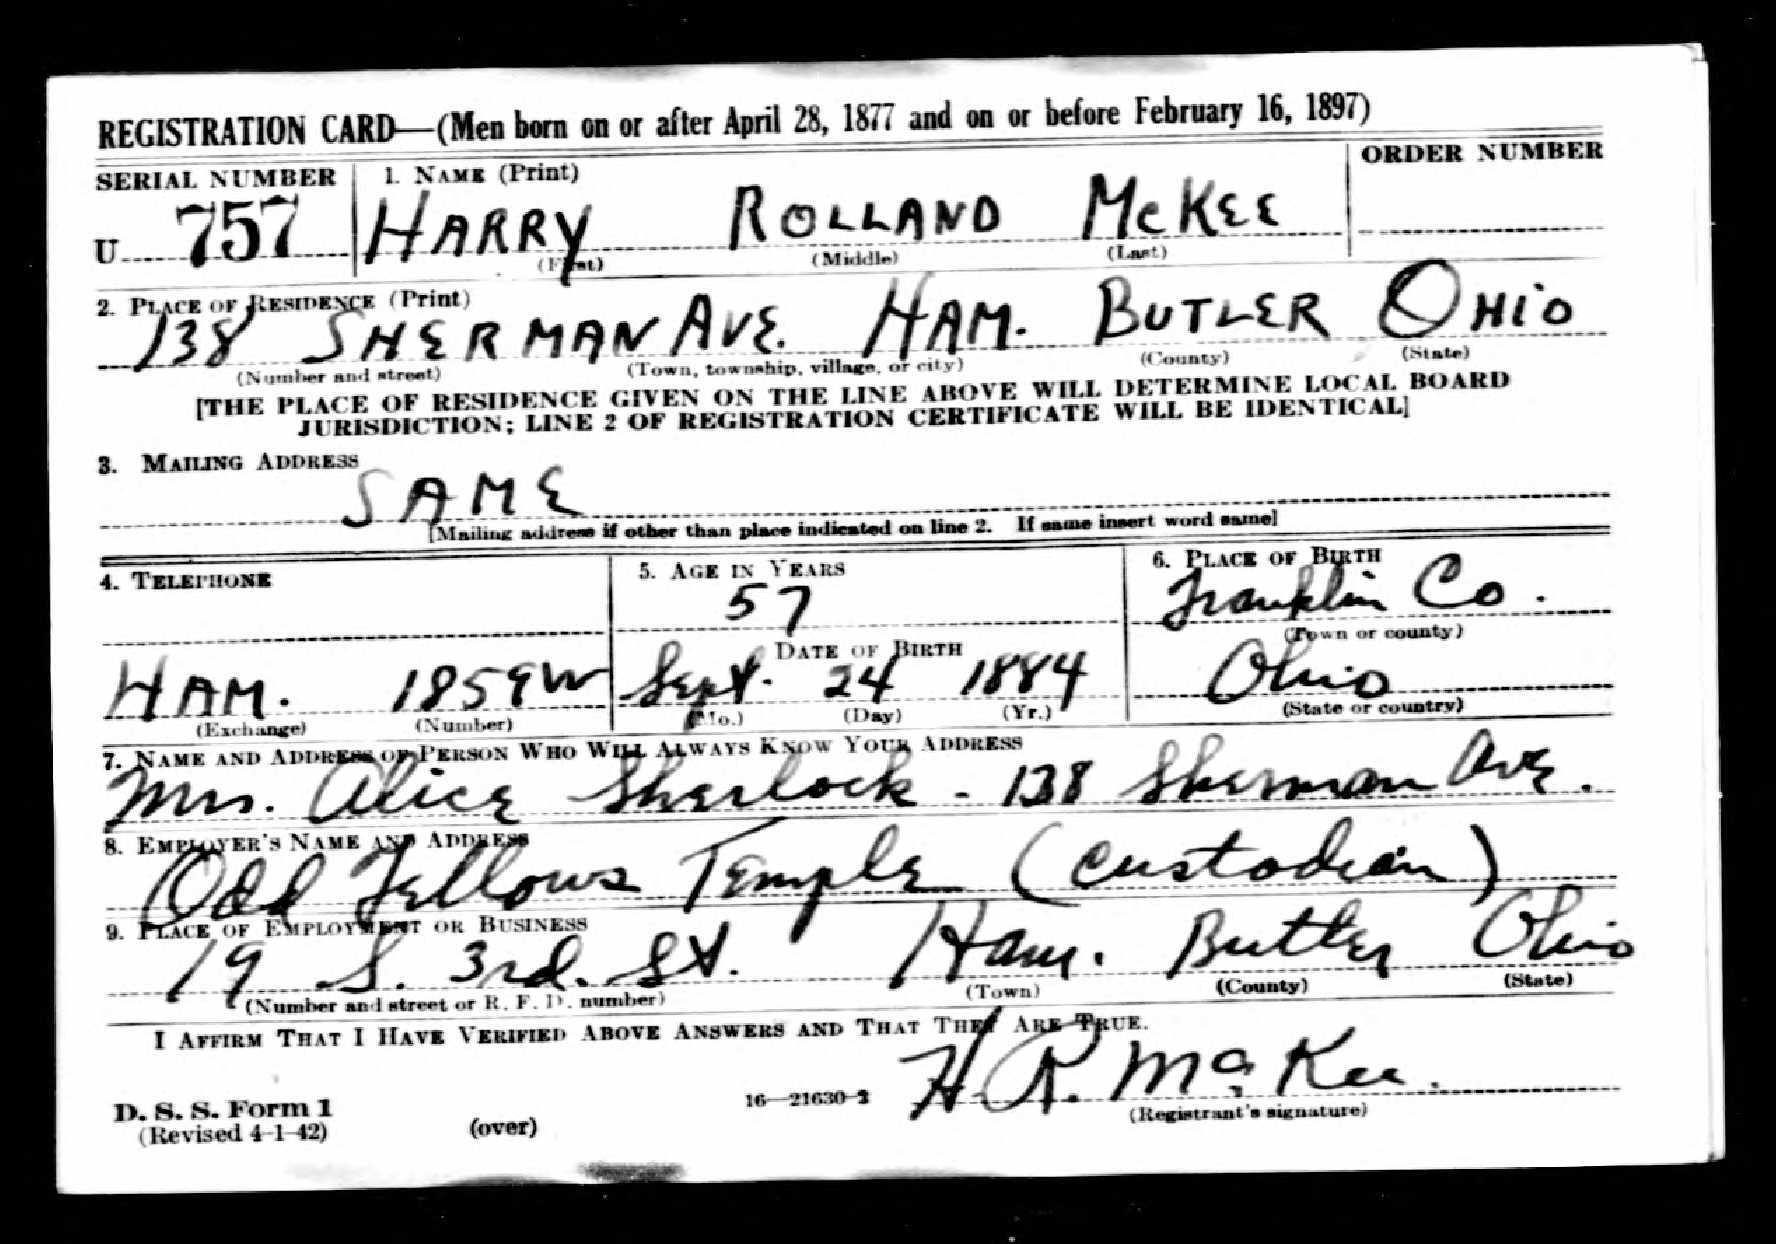 REGISTRATION CARD—(Men born on or after April 28, 1877 and on or before February 16, 1897)
SERIAL NUMBER 1. NAME (Print) ORDER NUMBER
U 757 HARRY ROLLAND McKEE
(First) (Middle) (Last)
2. PLACE OF RESIDENCE (Print)
138 SHERMAN AVE. HAM. BUTLER OHIO
(Number and street) (Town, township, village, or city) (County) (State)
[THE PLACE OF RESIDENCE GIVEN ON THE LINE ABOVE WILL DETERMINE LOCAL BOARD
JURISDICTION; LINE 2 OF REGISTRATION CERTIFICATE WILL BE IDENTICAL]
3. MAILING ADDRESS
SAME
[Mailing address if other than place indicated on line 2. If same insert word same]
4. TELEPHONE 5. AGE IN YEARS 6. PLACE OF BIRTH
57 Franklin Co.
(Town or county)
DATE OF BIRTH
HAM. 1859W Sept. 24 1884 Ohio
(Exchange) (Number) (Mo.) (Day) (Yr.) (State or country)
7. NAME AND ADDRESS OF PERSON WHO WILL ALWAYS KNOW YOUR ADDRESS
Mrs. Alice Sherlock - 138 Sherman Ave.
8. EMPLOYER'S NAME AND ADDRESS
Odd Fellows Temple (custodian)
9. PLACE OF EMPLOYMENT OR BUSINESS
19 S. 3rd. St. Ham. Butler Ohio
(Number and street or R. F. D. number) (Town) (County) (State)
I AFFIRM THAT I HAVE VERIFIED ABOVE ANSWERS AND THAT THEY ARE TRUE.
H. R. McKee.
D. S. S. Form 1 16—21630-2 (Registrant's signature)
(Revised 4-1-42) (over)